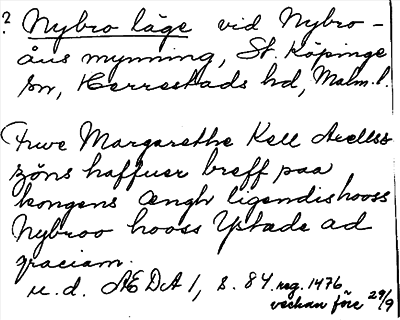 ? Nybro läge vid Nybro-
åns mynning, St. Köpinge
sn, Herrestads hd, Malm. l.
Frwe Margarethe Kell Axellss
söns haffuer breff paa
kongens Ængh ligendis hooss
Nybroo hooss Ystade ad
graciam.
u. d. ÆDA 1, s. 84. reg. 1476
veckan före 29/9